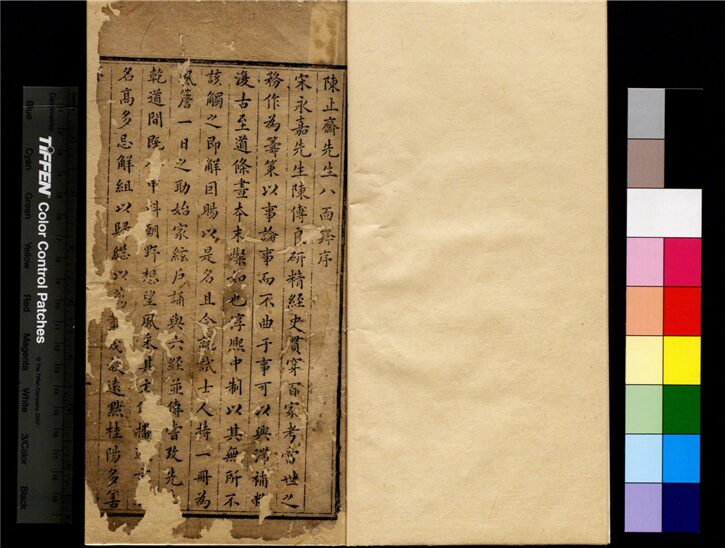 陳止齋先生八面鋒序
宋永嘉先生陳傅良研精經史貫穿百家考當世之
務作為籌策以事論事而不曲于事可以興滯補弊
復古至道條畫本末粲如也淳熙中制以其無所不
該觸之即解回賜以是名且令試士人持一冊為
風簷一日之助始家絃戶誦與六經並傳睿政先
乾道間既 甲科朝野想望風采其文 播
名高多忌解組以 遠點桂陽多善
TIFFEN Color Control Patches
© The Tiffen Company, 2007
Blue Cyan Green Yellow Red Magenta White 3/Color Black